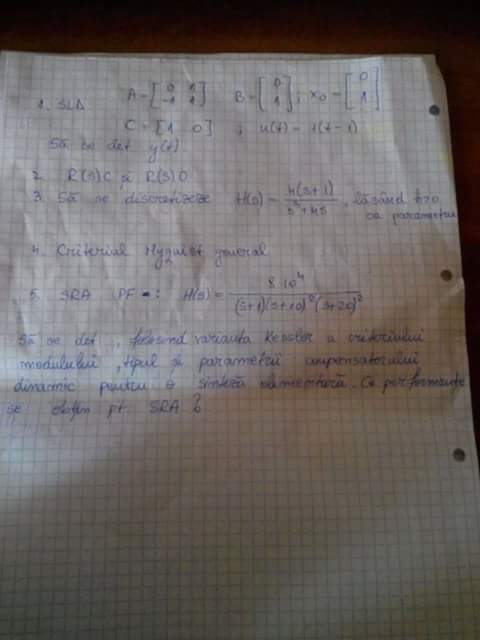 1. SLD A = [0 1; -1 1] B = [0; 1] ; x₀ = [0; 1]
C = [1 0] ; u(t) = 1(t-1)
Să se det y(t)
2. R(s)C și R(s)O
3. Să se discretizeze H(s) = 4(s+1) / (s²+4s) , lăsând h>0
ca parametru
4. Criteriul Nyquist general
5. SRA PF : H(s) = 8·10⁴ / ((s+1)(s+10)²(s+20)²)
Să se det, folosind varianta Kessler a criteriului
modulului, tipul și parametrii compensatorului
dinamic pentru o sinteză elementară. Ce performanțe
se obțin pt. SRA ?